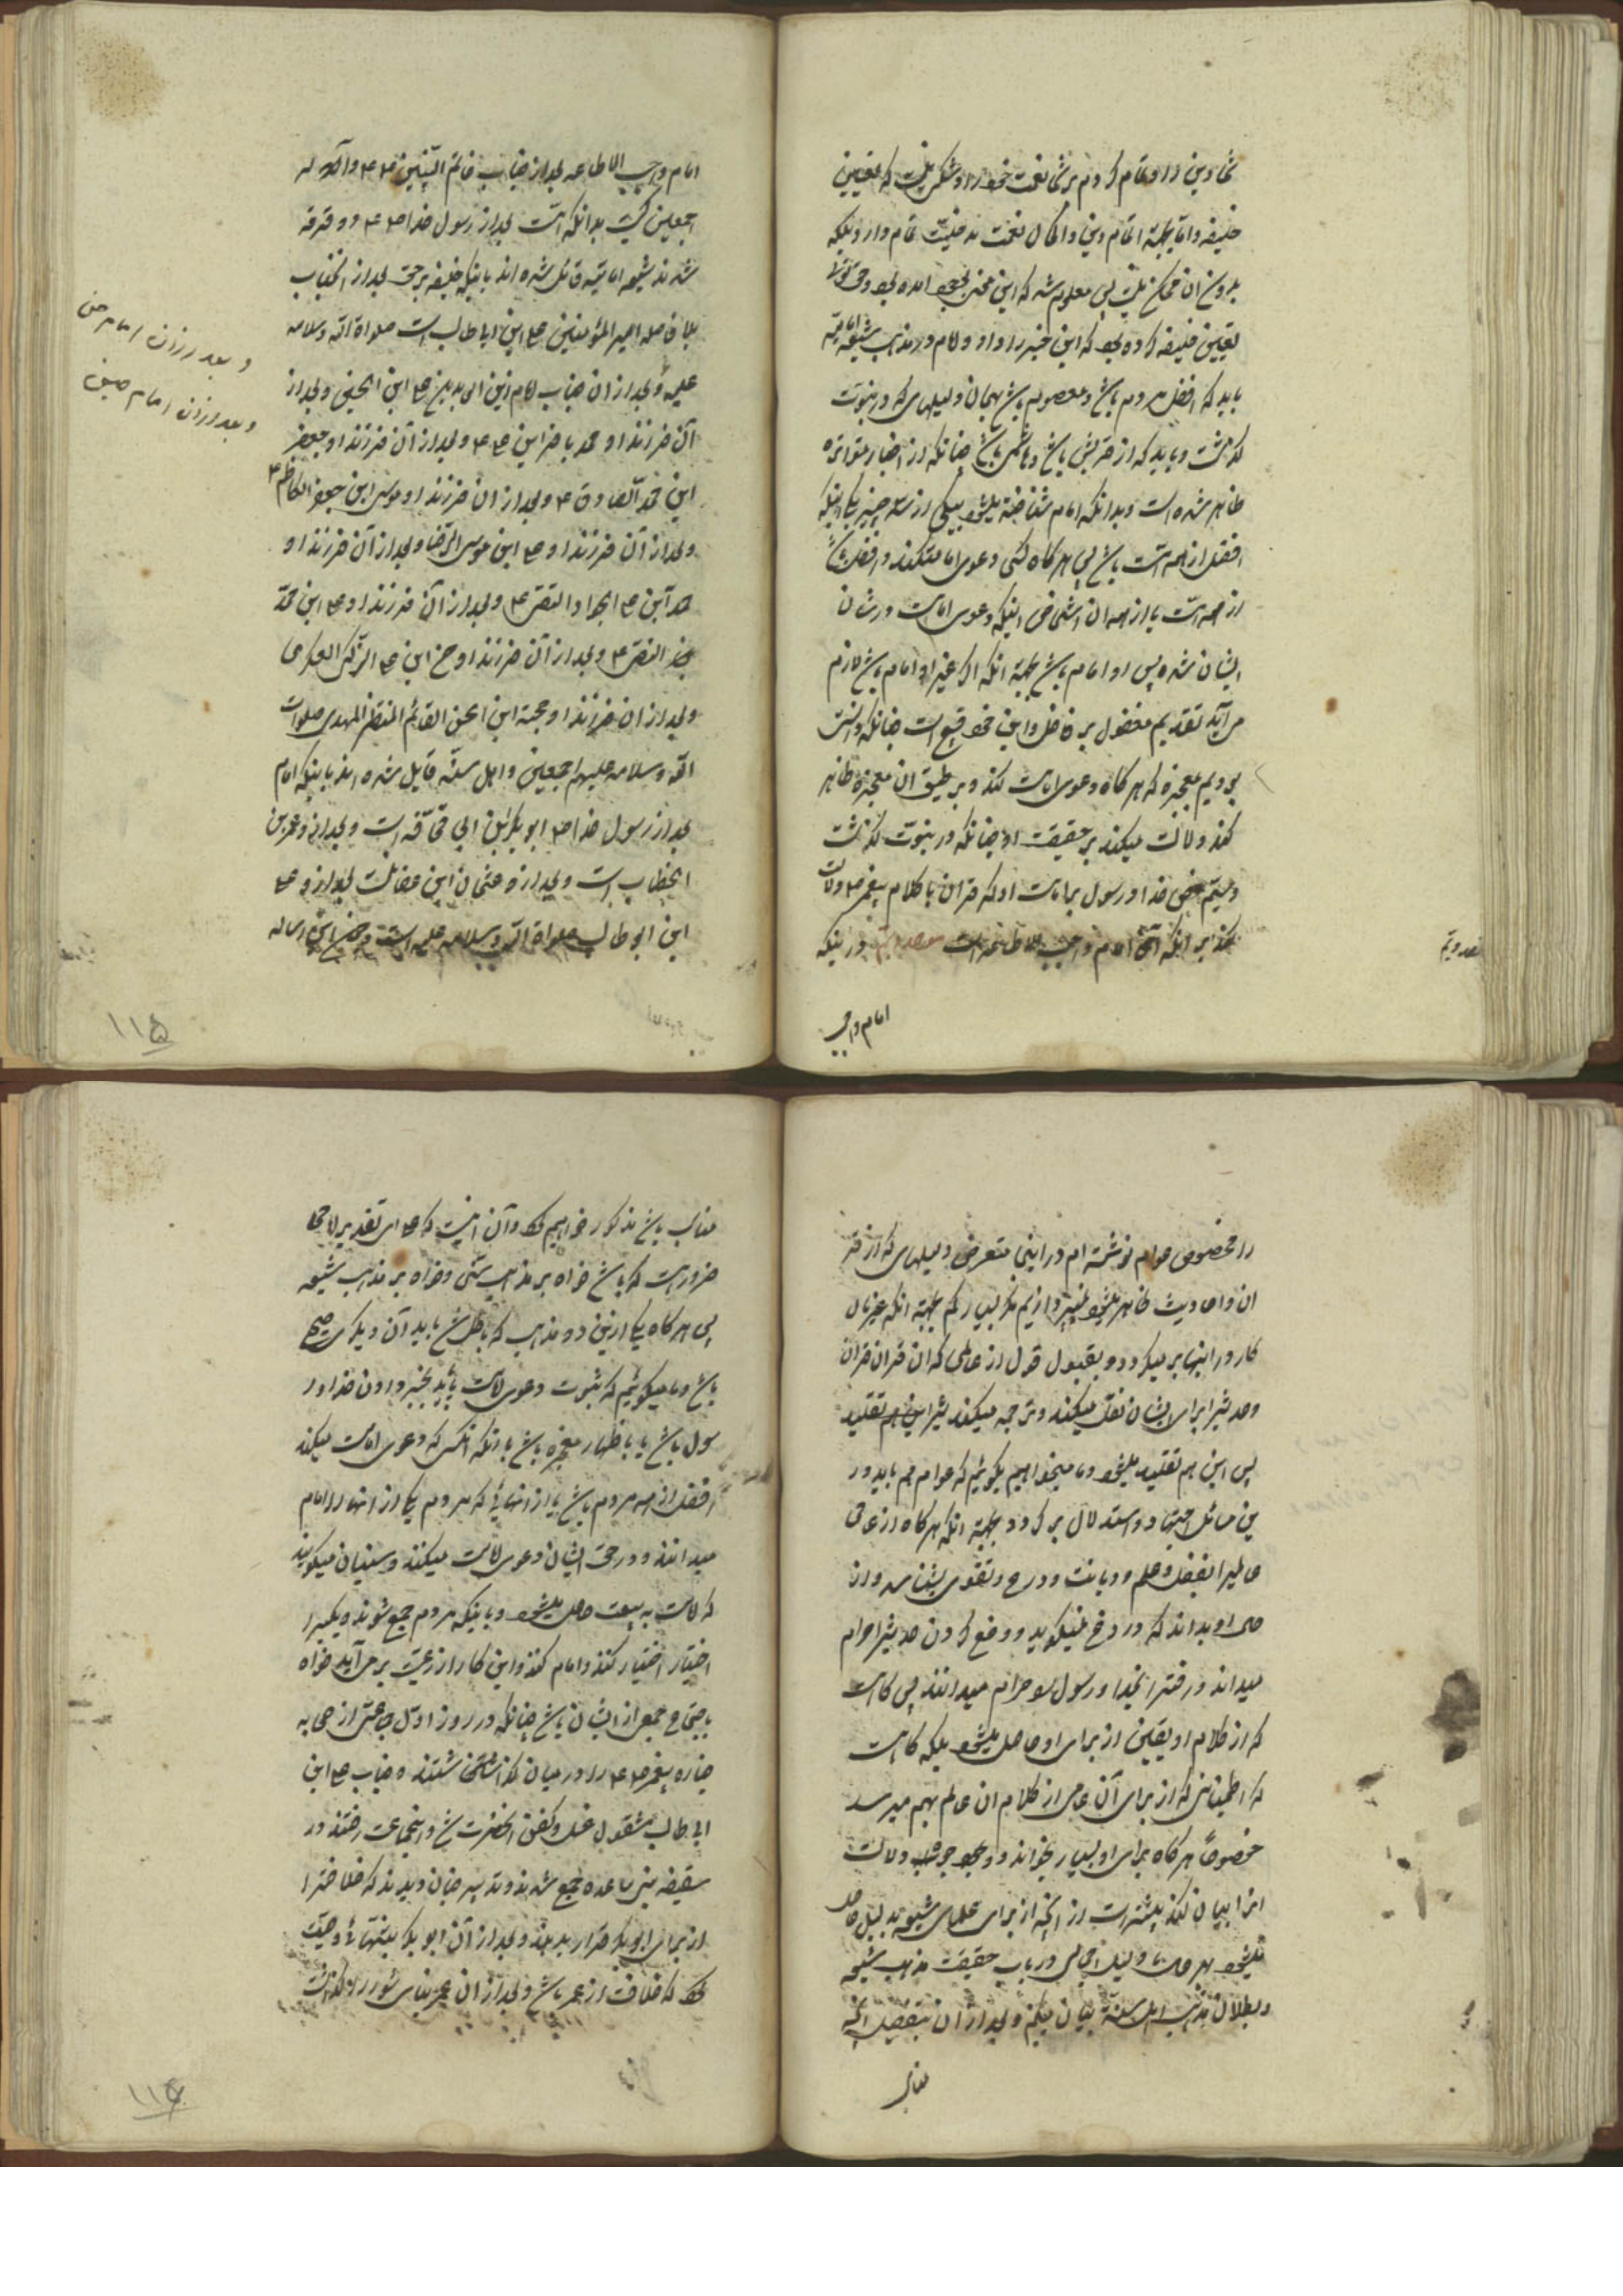 شما دین را و تمام کردم بر شما نعمت خود را و شکی نیست که تعیین
خلیفه و امام بجهة اتمام دین و اکمال نعمت
بدون ان ممکن نیست پس معلوم شد که این معنی بعمل امده بود و حق تعالی
تعیین خلیفه کرده بود که این خبر را داد و امام در مذهب شیعه امامیه
باید که افضل مردم باشد و معصوم باشد بهمان دلیلهای که در نبوت
گذشت و باید که از قریش باشد و هاشمی باشد چنانکه از اخبار متواتره
ظاهر شده است و بدانکه امام شناخته میشود بیکی از سه چیز یکی اینکه
افضل از همه امت باشد پس هرگاه کسی دعوی امامت کند و افضل باشد
از همه امت یا از همه ان اشخاصی اینکه دعوی امامت در شان
ایشان شده پس او امام باشد بجهة انکه اگر غیر او امام باشد لازم
می آید تقدیم مفضول بر فاضل و این خود قبیح است چنانکه دانستی
دویم معجزه که هرگاه دعوی امامت کند و بر طبق ان معجزه ظاهر
کند دلالت میکند بر حقیقت او چنانکه در نبوت گذشت
و سیم نص خدا و رسول بر امامت او که قران یا کلام پیغمبر ص دلالت
کند بر اینکه آن امام واجب الاطاعه است مقصد دویم در اینکه
امام واجب
مقصد دویم
امام واجب الاطاعه بعد از جناب خاتم النبیین ص و آله
اجمعین کیست بدانکه امت بعد از رسول خدا ص دو فرقه
شدند شیعه امامیه قائل شده اند باینکه خلیفه بر حق بعد از انجناب
بلا فاصله امیر المؤمنین علی ابن ابیطالب است صلواة الله و سلامه
علیه و بعد از ان جناب امام زین العابدین علی ابن الحسین و بعد از
آن فرزند او محمد باقر ابن علی ع و بعد از آن فرزند او جعفر
ابن محمد الصادق ع و بعد از ان فرزند او موسی ابن جعفر الکاظم ع
و بعد از آن فرزند او علی ابن موسی الرضا و بعد از آن فرزند او
محمد ابن علی الجواد التقی ع و بعد از آن فرزند او علی ابن محمد
النقی ع و بعد از آن فرزند او حسن ابن علی الزکی العسکری
و بعد از ان فرزند او حجة ابن الحسن القائم المنتظر المهدی صلوات
الله و سلامه علیهم اجمعین و اهل سنّه قایل شده اند باینکه امام
بعد از رسول خدا ص ابو بکر ابن ابی قحافه است و بعد از او عمر بن
الخطاب است و بعد از او عثمان ابن عفان است و بعد از او علی
ابن ابی طالب صلواة الله و سلامه علیه است و چون این رساله
و بعد از ان امام حسن
و بعد از ان امام حسین
۱۱۵
را مخصوص عوام نوشته ام در اینجا متعرض دلیلهای که از قر
ان و احادیث ظاهر میشود نمیپردازیم مگر بسیار کم بجهة انکه غیر مال
کار در اینها بر میگردد بقبول قول از عالمی که ان قران قران
و حدیث را برای ایشان نقل میکند و ترجمه میکند
پس این هم تقلید میشود و ما میخواهیم بگوئیم که عوام هم باید در
این مسائل اجتهاد و استدلال بر گردد بجهة انکه هرگاه از عامی
عالمیرا بفضل و علم و دیانت و ورع و تقوی بشناسد و از
حال او بداند که دروغ نمیگوید و وضع کردن حدیث را حرام
میداند و افترا بخدا و رسول را حرام میداند پس گاه است
که از کلام او یقین از برای او حاصل میشود بلکه گاه است
که اطمینانی که از برای آن عامی از کلام ان عالم بهم میرسد
خصوصاً هرگاه برای او بسیار بخواند و وجوه دلالت
انرا بیان کند بیشتر است از انچه از برای علمای شیعه بدلیل حاصل
میشود بهر حال ما دلیل اجمالی در باب حقیقت مذهب شیعه
و بطلان مذهب اهل سنة بیان میکنیم و بعد از ان بتفصیل انچه
مناسب
مناسب باشد مذکور خواهیم کرد و آن اینست که علی ای تقدیر لا محا
ضرور است که باشد خواه بر مذهب سنّی و خواه بر مذهب شیعه
پس هرگاه یکی ازین دو مذهب که باطل شد باید آن دیگری صحیح
باشد و ما میگوئیم که ثبوت دعوی امامت باید بخبر دادن خدا و ر
سول باشد یا باظهار معجزه باشد یا بانکه انکس که دعوی امامت میکند
افضل از همه مردم باشد یا از انهائی که مردم یکی از انها را امام
میدانند و در حق ایشان دعوی امامت میکنند و سنیان میگویند
که امامت به بیعت حاصل میشود و باینکه مردم جمع شوند و یکیرا
اختیار کنند و امام کنند و این کار از رعیت بر می آید خواه
باجتماع جمعی از ایشان باشد چنانکه در روز اول جماعتی از صحابه
جنازه پیغمبر ص را در میان گذاشتند و جناب علی ابن
ابی طالب مشغول غسل و کفن انحضرت شد و اینجماعت رفتند در
سقیفه بنی ساعده جمع شدند و تدبیر چنان دیدند که خلافترا
از برای ابو بکر قرار بدهند و بعد از آن ابو بکر بتنهائی وصیت
کرد که خلافت از عمر باشد و بعد از ان عمر بنای شوری را گذاشت
۱۱۶